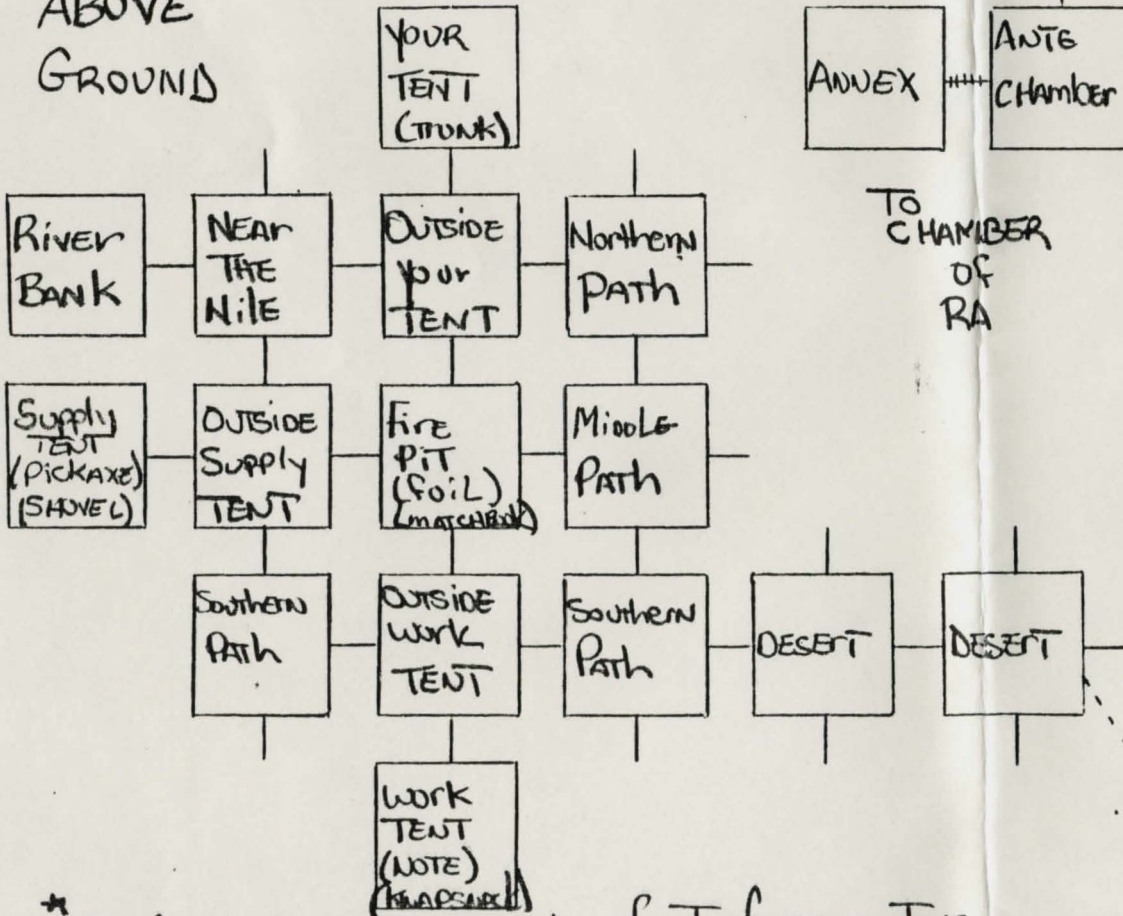 ABOVE
GROUND
YOUR
TENT
(TRUNK)
ANNEX
ANTE
CHAMBER
River
BANK
NEAR
THE
Nile
OUTSIDE
your
TENT
Northern
PATH
TO
CHAMBER
OF
RA
Supply
TENT
(PickAXE)
(SHOVEL)
OUTSIDE
Supply
TENT
Fire
PiT
(foiL)
(MATCHBOOK)
MIDDLE
PATH
Southern
PATH
OUTSIDE
WORK
TENT
Southern
PATH
DESERT
DESERT
WORK
TENT
(NOTE)
(KNAPSACK)
*